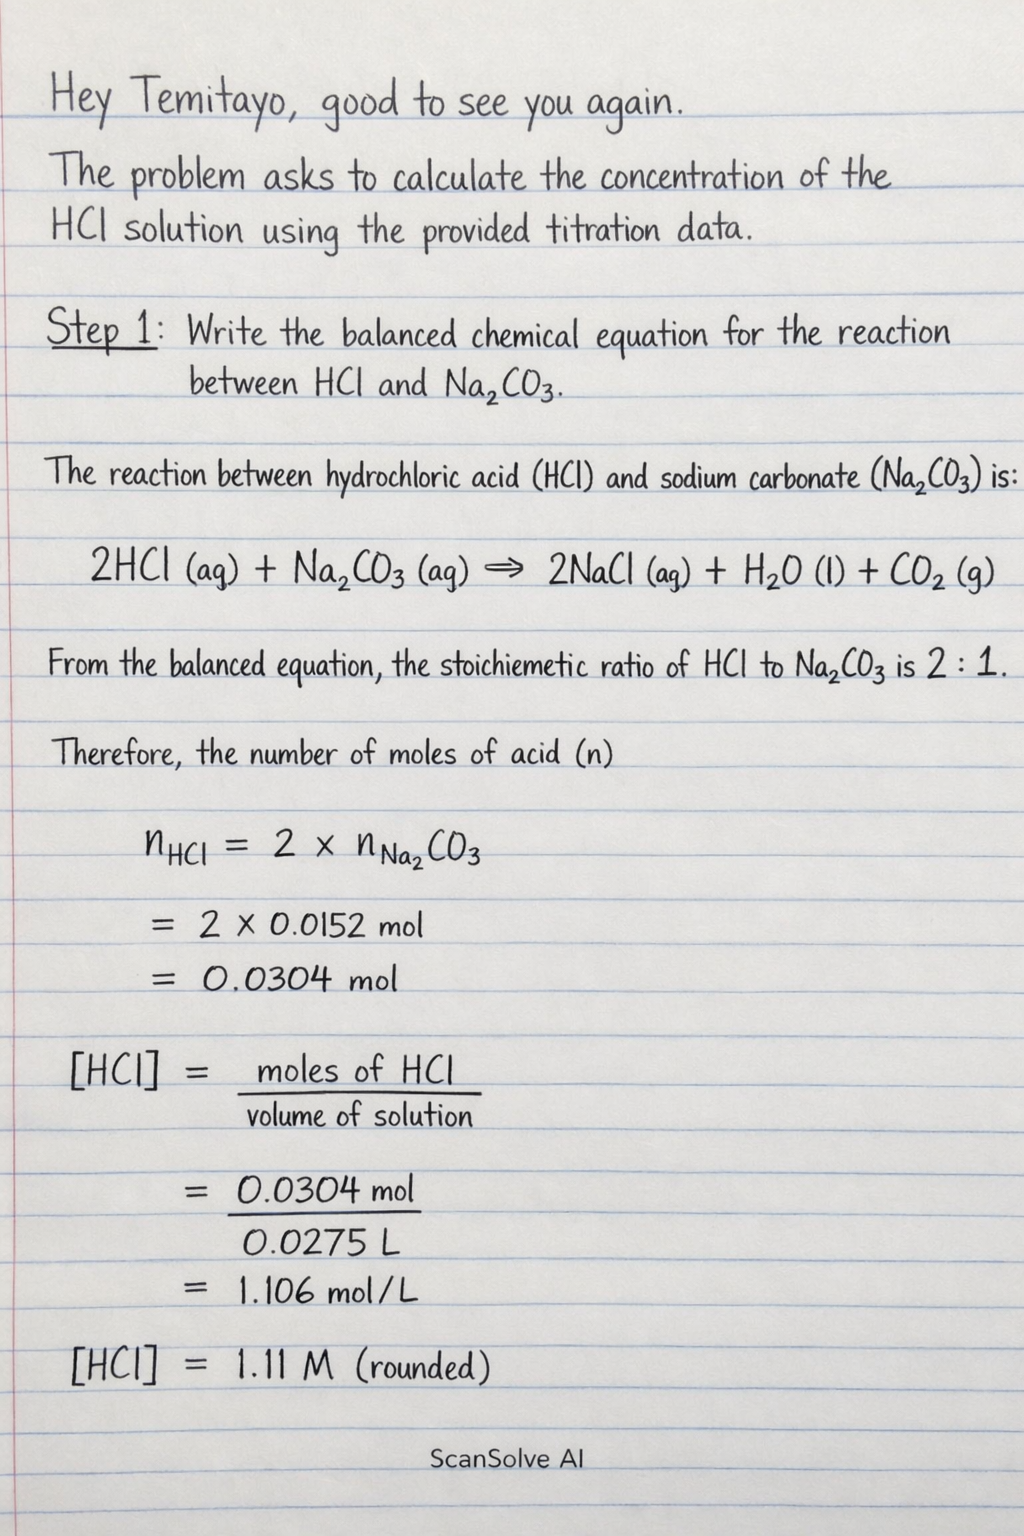 Hey Temitayo, good to see you again.
The problem asks to calculate the concentration of the
HCl solution using the provided titration data.
Step 1: Write the balanced chemical equation for the reaction
between HCl and Na₂CO₃.
The reaction between hydrochloric acid (HCl) and sodium carbonate (Na₂CO₃) is:
2HCl (aq) + Na₂CO₃ (aq) ⇒ 2NaCl (aq) + H₂O (l) + CO₂ (g)
From the balanced equation, the stoichiemetic ratio of HCl to Na₂CO₃ is 2 : 1.
Therefore, the number of moles of acid (n)
n HCl = 2 × n Na₂CO₃
= 2 × 0.0152 mol
= 0.0304 mol
[HCl] = moles of HCl
volume of solution
= 0.0304 mol
0.0275 L
= 1.106 mol/L
[HCl] = 1.11 M (rounded)
ScanSolve AI